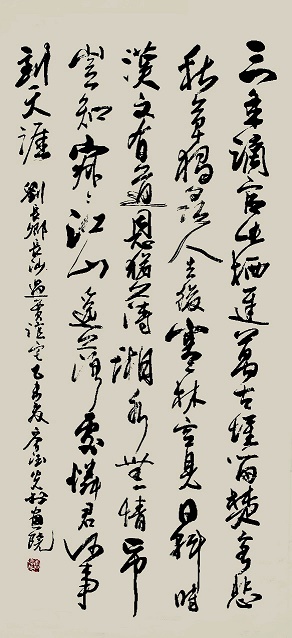 三年謫宦此栖遲萬古惟留楚客悲
秋草獨尋人去後寒林空見日斜時
漢文有道恩猶薄湘水無情吊
豈知寂々江山遥落處憐君何事
到天涯 劉長卿長沙過賈誼宅乙未夏